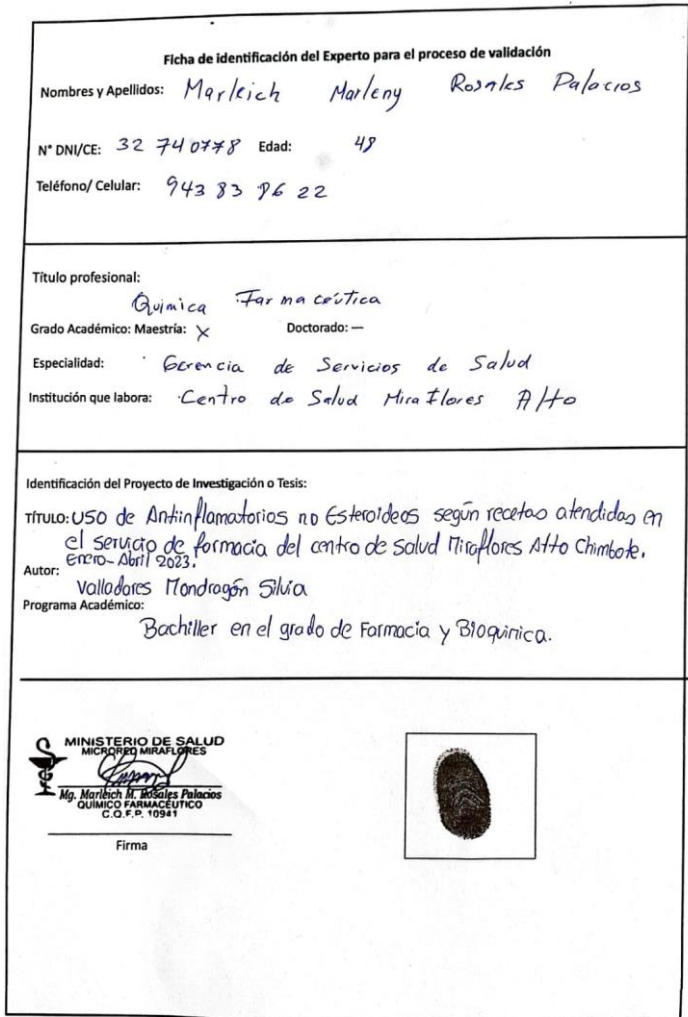 Ficha de identificación del Experto para el proceso de validación
Nombres y Apellidos: Marleich Marleny Rosales Palacios
N° DNI/CE: 32 740778 Edad: 48
Teléfono/ Celular: 943 83 86 22
Título profesional:
Química Farmacéutica
Grado Académico: Maestría: X Doctorado: —
Especialidad: Gerencia de Servicios de Salud
Institución que labora: Centro de Salud Miraflores Alto
Identificación del Proyecto de Investigación o Tesis:
TÍTULO: USO de Antiinflamatorios no Esteroideos según recetas atendidas en
el servicio de farmacia del centro de salud Miraflores Alto Chimbote.
Enero-Abril 2023.
Autor:
Valladares Mondragón Silvia
Programa Académico:
Bachiller en el grado de Farmacia y Bioquímica.
MINISTERIO DE SALUD
MICRORED MIRAFLORES
Mg. Marleich M. Rosales Palacios
QUÍMICO FARMACÉUTICO
C.Q.F.P. 10941
Firma